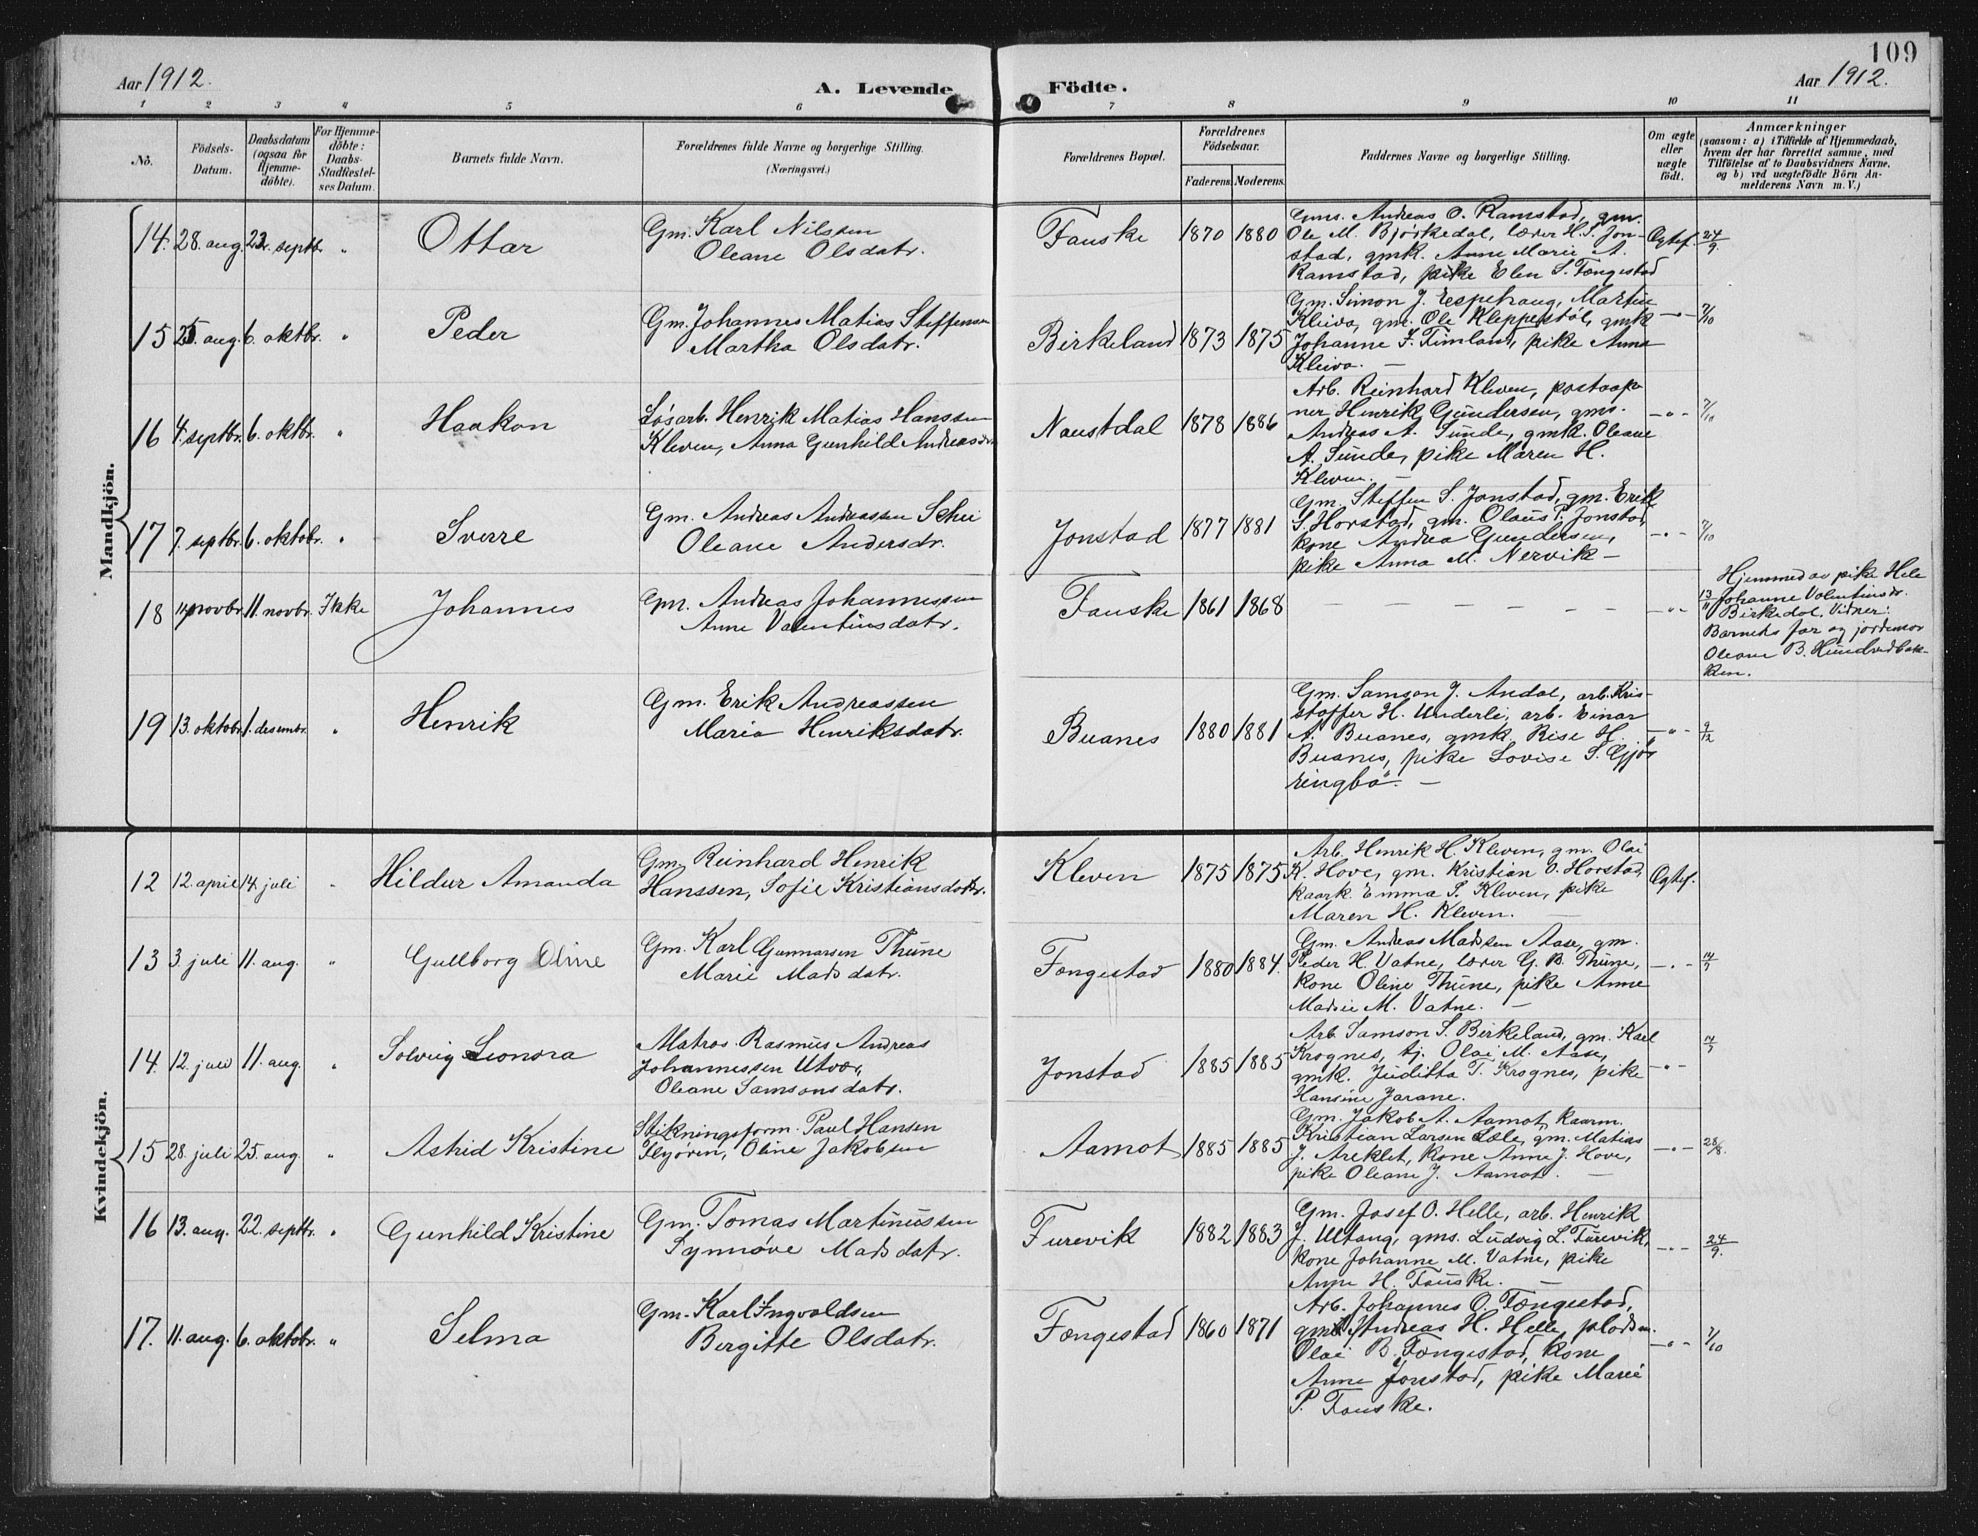 109
Aar 1912.
A. Levende Födte.
Aar 1912.
1 2 3 4 5 6 7 8 9 10 11
No.
Födsels-
Datum.
Daabsdatum
(ogsaa for
Hjemme-
döbte).
For Hjemme-
döbte:
Daabs-
Stadfæstel-
ses Datum.
Barnets fulde Navn.
Forældrenes fulde Navne og borgerlige Stilling.
(Næringsvei.)
Forældrenes Bopæl.
Forældrenes
Födselsaar.
Faderens. Moderens.
Faddernes Navne og borgerlige Stilling.
Om ægte
eller
uægte
födt.
Anmærkninger
(saasom: a) i Tilfælde af Hjemmedaab,
hvem der har forrettet samme, med
Tilföielse af to Daabsvidners Navne,
og b) ved uægtefödte Börn An-
melderens Navn m. V.)
Mandkjön.
14. 28. aug. 22. septbr. " Ottar
Gm. Karl Nilssen
Oleane Olsdatr.
Fauske 1870 1880
Gms. Andreas O. Ramstad, gm.
Ole M. Bjørkedal, lærer H. S. Jon-
stad, gmk. Anne Marie A.
Ramstad, pike Elen S. Fængestad
Egtef. 24/9.
15 25 aug. 6. oktbr. " Peder
Gm. Johannes Matias Steffensen
Martha Olsdatr.
Birkeland 1873 1875
Gm. Simon J. Espehaug, Martin
Kleiva, gm. Ole Kleppestøl, gmk
Johanne F. Timland, pike Anna
Kleiva. —
— " — 7/10
16 4. septbr. 6. oktbr. " Haakon
Løsarb. Henrik Matias Hanssen
Kleven, Anna Gunhild Andreasdr.
Naustdal 1878 1886
Arb. Reinhard Kleven, postaap-
ner Henrik Gundersen, gms.
Andreas A. Sunde, gmk. Oleane
A. Sunde, pike Maren H.
Kleven. —
— " — 7/10
17 7. septbr. 6. oktobr. " Sverre
Gm. Andreas Andreassen Schei
Oleane Andersdr.
Jonstad 1877 1881
Gm. Steffen S. Jonstad, gm. Erik
S. Horstad, gm. Olaus P. Jonstad,
kone Andrea Gundersen,
pike Anna M. Nervik —
— " — 7/10
18 11. novbr. Ikke Johannes
Gm. Andreas Johannessen
Anne Valentinsdatr.
Fauske 1861 1868
— — — — — — —
— " —
Hjemmed av pike Hele
13/11 Johanne Valentinsdr.
Birkedal. Vidner:
Barnets far og jordemor
Oleane B. Hundvedbak-
ken.
19 13. oktobr. 1. desembr. " Henrik
Gm. Erik Andreassen
Maria Henriksdatr.
Buanes 1880 1881
Gm. Samson J. Andal, arb. Kris-
stoffer H. Underli, arb. Einar
A. Buanes, gmk. Rise H.
Buanes, pike Lovise S. Gjø-
ringbø. —
— " — 9/12
Kvindekjön.
12 12. april 14. juli " Hildur Amanda
Gm. Reinhard Henrik
Hanssen, Sofie Kristiansdatr.
Kleven 1875 1875
Arb. Henrik H. Kleven, gm. Olai
K. Hove, gm. Kristian O. Horstad,
kaark. Emma S. Kleven, pike
Maren H. Kleven. —
Egtef.
13 3. juli 11. aug. " Gullborg Oline
Gm. Karl Gunnarsen Thune
Marie Madsdatr.
Fængestad 1880 1884.
Gm. Andreas Madssen Aase, gm.
Peder H. Vatne, lærer G. B. Thune,
kone Oline Thune, pike Anne
Marie M. Vatne. —
— " —
14. 12. juli 11. aug. " Solveig Leonora
Matros Rasmus Andreas
Johannessen Utvær,
Oleane Samsonsdatr.
Jonstad 1885 1885
Arb. Samson S. Birkeland, gm. Karl
Krognes, tj. Olai M. Aase,
gmk. Juditta T. Krognes, pike
Hansine Jarane.
— " —
15 28. juli 25. aug. " Astrid Kristine
Stikningsform. Paul Hansen
Flyoren, Oline Jakobsen
Aamot 1885 1885
Gm. Jakob A. Aamot, kaarm.
Kristian Larsen Lœle, gm. Matias
J. Areklet, kone Anne J. Hove,
pike Oleane J. Aamot. —
— " — 28/8.
16 13. aug. 22. septbr. " Gunhild Kristine
Gm. Tomas Martinussen
Synnøve Madsdatr.
Furevik 1882 1883
Gm. Josef O. Helle, arb. Henrik
J. Ullang, gms. Ludvig L. Furevik,
kone Johanne M. Vatne, pike
Anne H. Fauske. —
— " — 24/9.
17. 11. aug. 6. oktobr. " Selma
Gm. Karl Ingvaldsen
Bergitte Olsdatr.
Fængestad 1860 1871
Arb. Johannes O. Fængestad,
Andreas H. Helle, pladsm.
Olai B. Fængestad, kone
Anne Jonstad, pike Marie
P. Fauske.
— " — 7/10